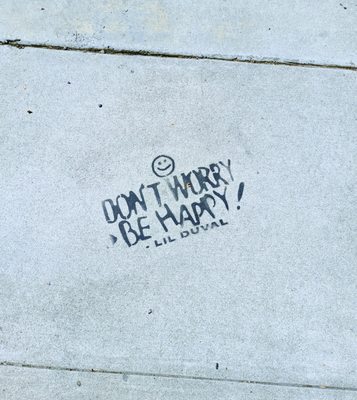 DON'T WORRY
BE HAPPY!
- LIL DUVAL